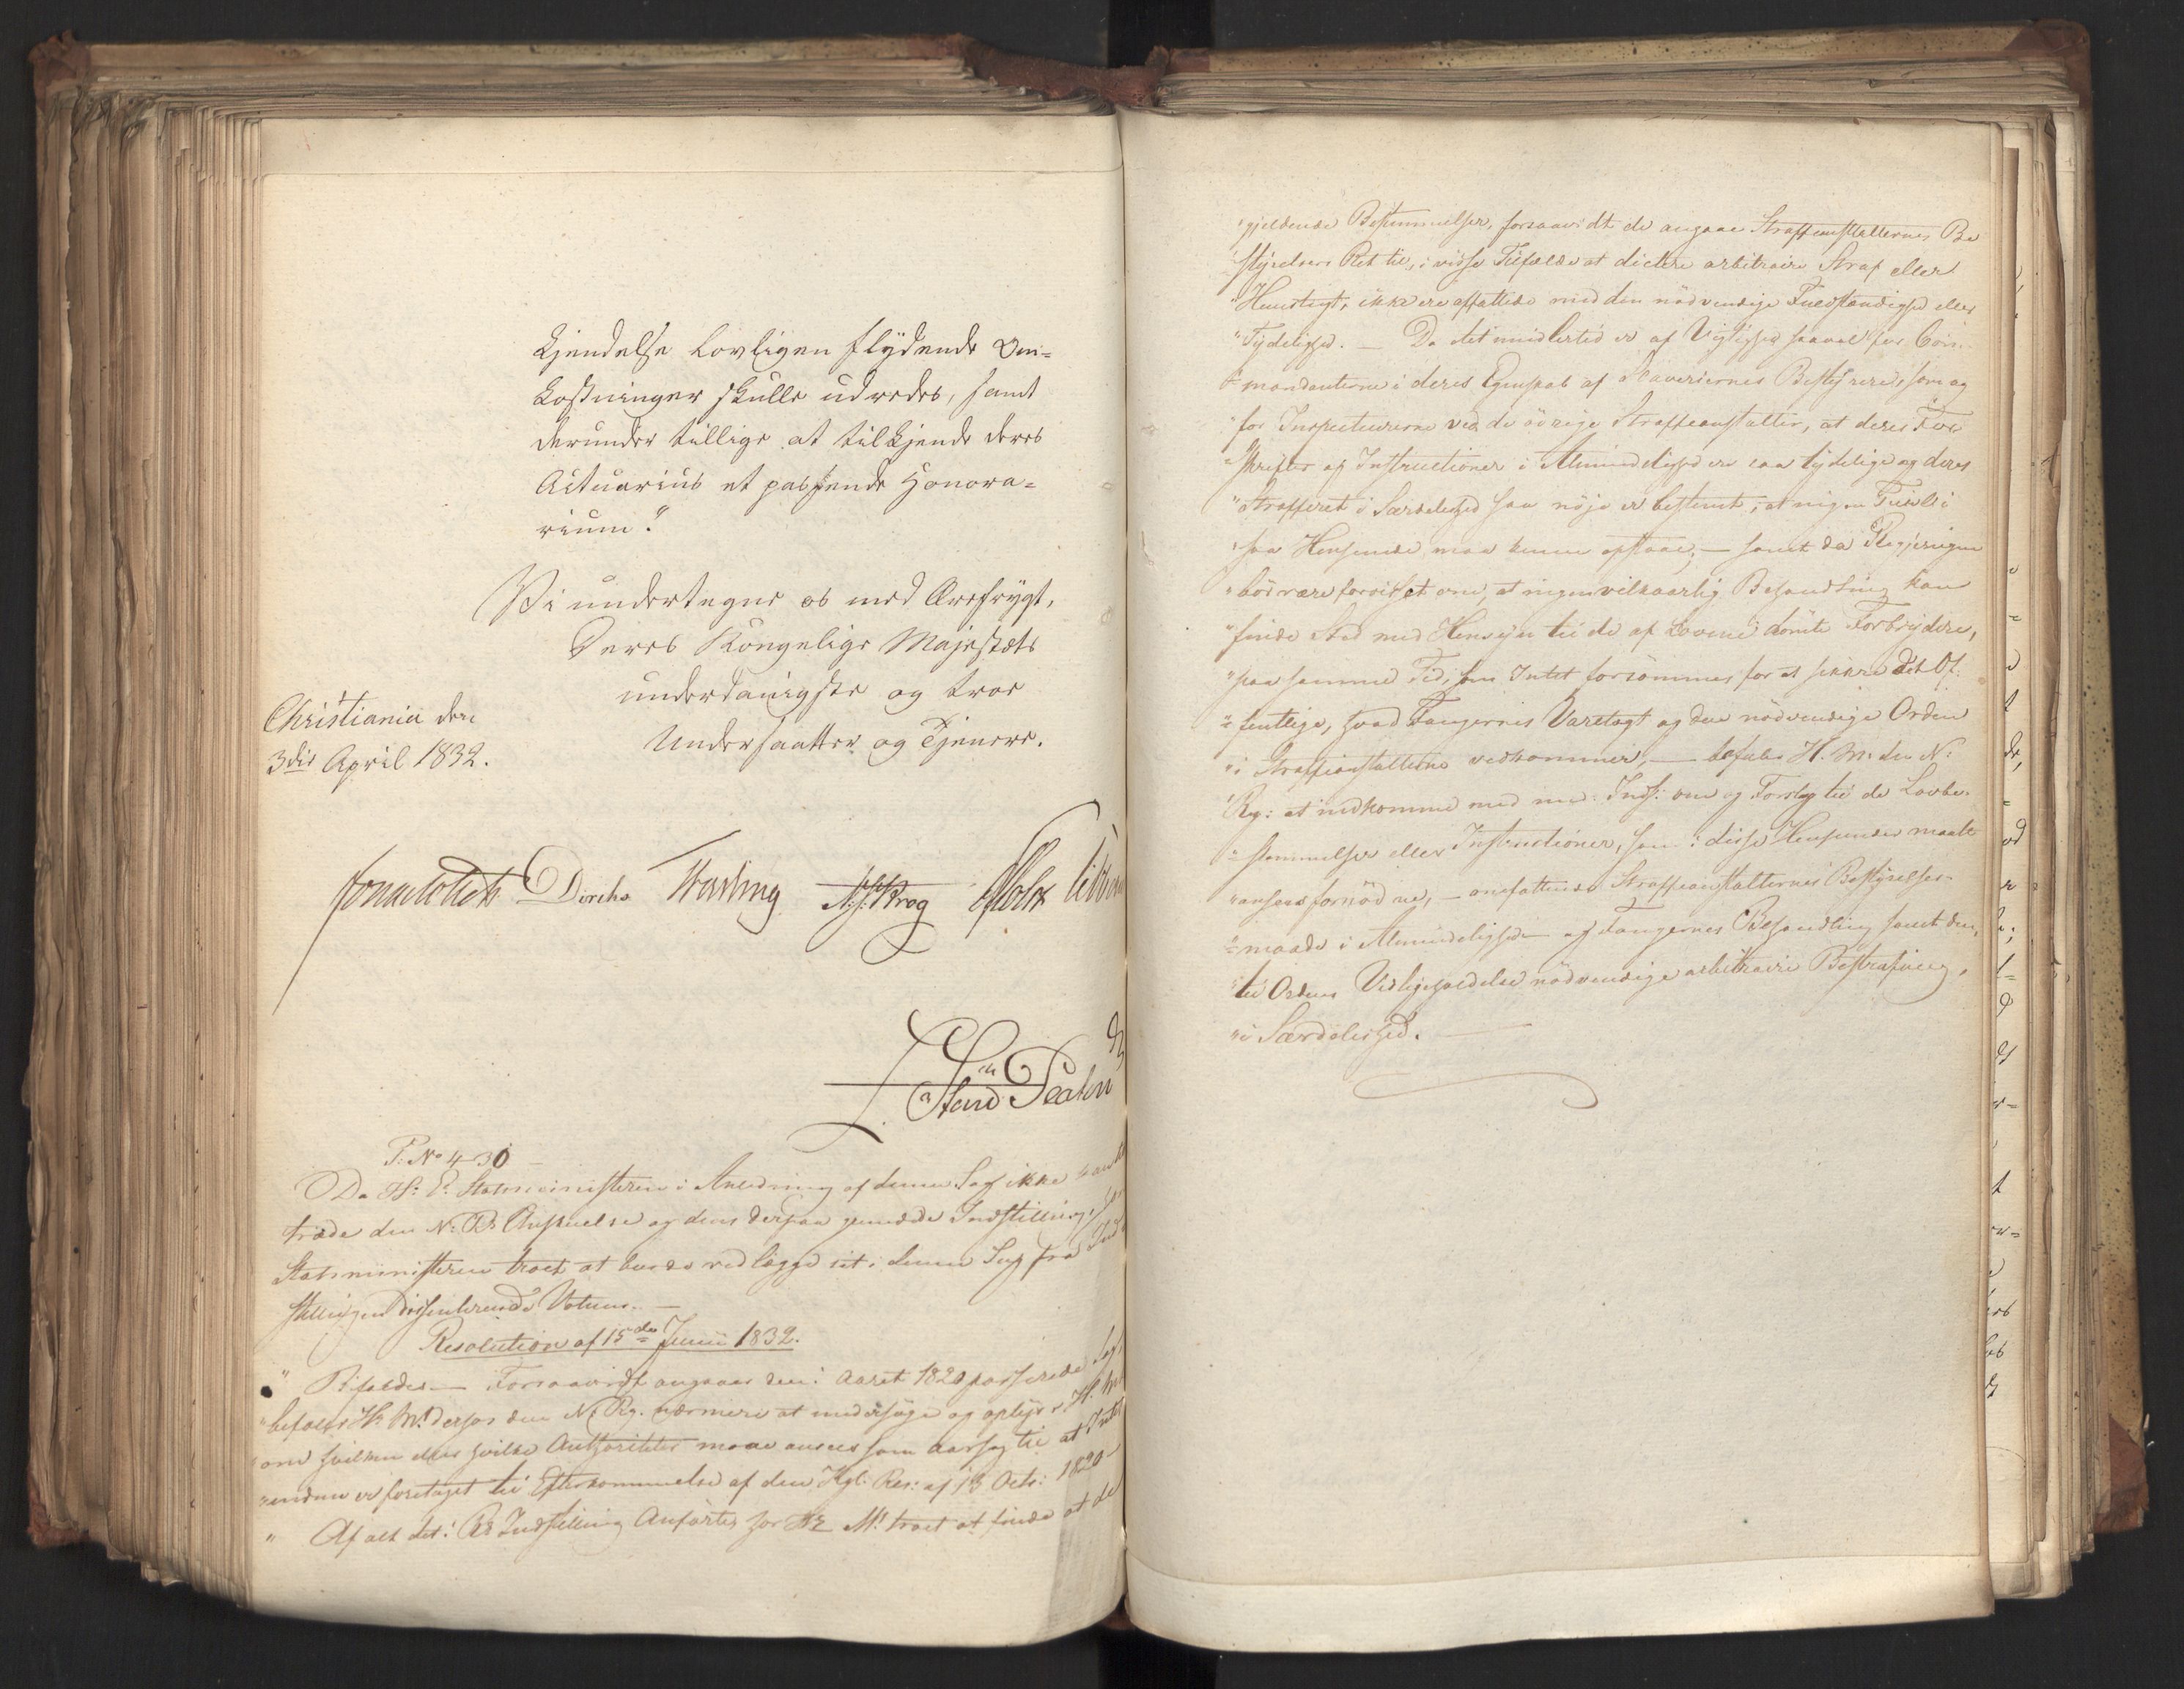 Kjendelse lovligen flydende Om-
kostninger skulle udredes, samt
derunder tillige at tilkjende deres
Actuarius et passende Honora-
rium."
Vi undertegne os med Ærefrygt,
Deres Kongelige Majestæts
underdanigste og troe
Undersaatter og Tjenere.
Christiania den
3die April 1832.
Jonas Collett Diriks Fasting Krog Holst
P: No 430
Da Statsministeren i Anledning af denne Sag ikke kan
træde den N: R: Anskuelse og dens derpaa grundede Indstilling,
Statsministeren troet at burde vedlægge sit i denne Sag fra Ind
stillingen dissenterende Votum. —
Resolution af 15de Junii 1832.
" Bifaldes — Forsaavidt angaaer den i Aaret 1820 passerede Sag,
"befaler H: M: derhos den N: Rg. nærmere at undersøge og oplyse H. M.
"om hvilken eller hvilke Authoriteter maae ansees som Aarsag til at Intet
"endnu er foretaget til Efterkommelse af den Kgl: Res: af 13 Octr: 1820 —
" Af alt det i Rs Indstilling Anførte har H: M: troet at finde at de
"gjeldende Bestemmelser, forsaavidt de angaae Straffeanstalternes Be
"styrelsers Ret til, i visse Tilfælde at dictere arbitraire Straf eller
"Huustugt, ikke ere affattede med den nødvendige Fuldstændighed eller
"Tydelighed. — Da det imidlertid er af Vigtighed saavel for Com-
"mandanterne i deres Egenskab af Slaveriernes Bestyrere, som og
"for Inspecteurerne ved de øvrige Straffeanstalter, at deres For
"skrifter og Instructioner i Almindelighed ere saa tydelige og deres
"Strafferet i Særdeleshed saa nøje er bestemt, at ingen Tvivl i
"saa Henseende maa kunne opstaae, — samt da Regjeringen
"bør være forvisset om, at ingen vilkaarlig Behandling kan
"finde Sted med Hensyn til de af Lovene dömte Forbrydere,
"paa samme Tid, som Intet forsömmes for at sikkre det Of-
"fentlige, hvad Fangernes Varetægt og den nödvendige Orden
"i Straffeanstalterne vedkommer, — befaler H. M. den N:
"Rg: at indkomme med und: Indst: om og Forslag til de Lovbe-
"stemmelser eller Instructioner, som i disse Henseender maatte
"ansees fornödne, — omfattende Straffeanstalternes Bestyrelses-
"maade i Almindelighed og Fangernes Behandling samt den,
"til Ordens Vedligeholdelse nödvendige arbitraire Bestrafning,
"i Særdeleshed. —